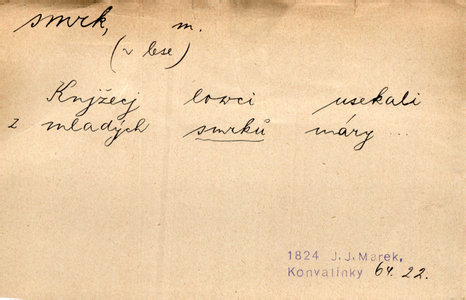 smrk, m.
(v lese)
Knjžecj lowci usekali
z mladých smrků máry ...
1824 J.J.Marek,
Konvalinky 64. 22.